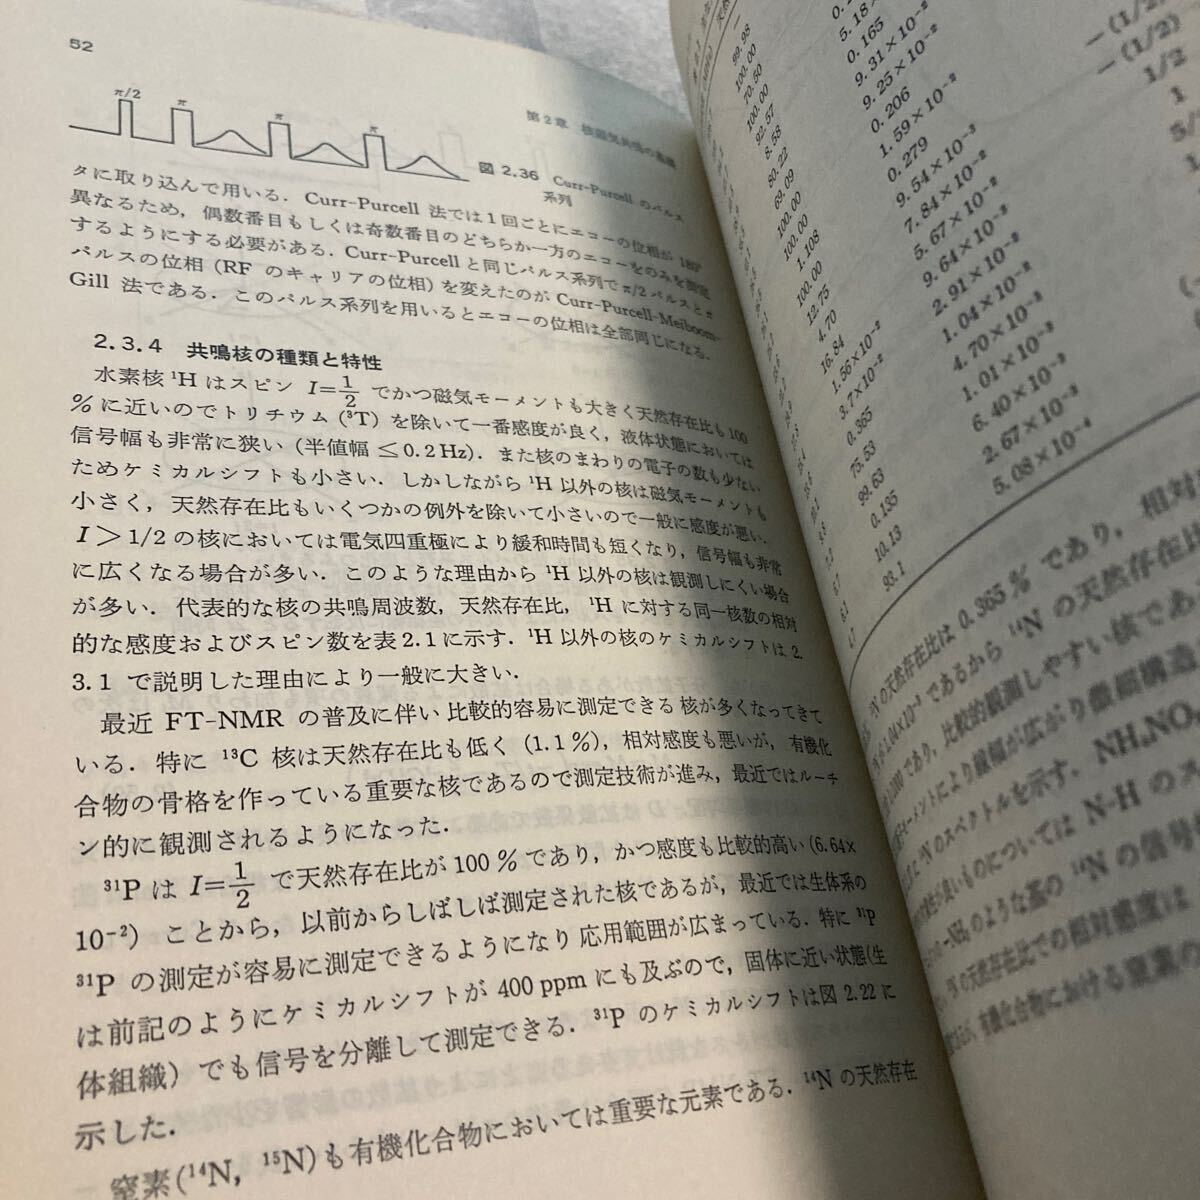 52
第2章 核磁気共鳴の基礎
π/2 π π π
図 2.36 Curr-Purcell のパルス
系列
タに取り込んで用いる．Curr-Purcell 法では1回ごとにエコーの位相が 180°
異なるため，偶数番目もしくは奇数番目のどちらか一方のエコーをのみを測定
するようにする必要がある．Curr-Purcell と同じパルス系列で π/2 パルスと π
パルスの位相（RF のキャリアの位相）を変えたのが Curr-Purcell-Meiboom-
Gill 法である．このパルス系列を用いるとエコーの位相は全部同じになる．
2.3.4 共鳴核の種類と特性
水素核 ¹H はスピン I=1/2 でかつ磁気モーメントも大きく天然存在比も 100
% に近いのでトリチウム（³T）を除いて一番感度が良く，液体状態においては
信号幅も非常に狭い（半値幅 ≤0.2 Hz）．また核のまわりの電子の数も少ない
ためケミカルシフトも小さい．しかしながら ¹H 以外の核は磁気モーメントも
小さく，天然存在比もいくつかの例外を除いて小さいので一般に感度が悪い．
I＞1/2 の核においては電気四重極により緩和時間も短くなり，信号幅も非常
に広くなる場合が多い．このような理由から ¹H 以外の核は観測しにくい場合
が多い．代表的な核の共鳴周波数，天然存在比，¹H に対する同一核数の相対
的な感度およびスピン数を表2.1に示す．¹H 以外の核のケミカルシフトは 2.
3.1 で説明した理由により一般に大きい．
最近 FT-NMR の普及に伴い比較的容易に測定できる核が多くなってきて
いる．特に ¹³C 核は天然存在比も低く（1.1％），相対感度も悪いが，有機化
合物の骨格を作っている重要な核であるので測定技術が進み，最近ではルーチ
ン的に観測されるようになった．
³¹P は I=1/2 で天然存在比が 100 % であり，かつ感度も比較的高い（6.64×
10⁻²）ことから，以前からしばしば測定された核であるが，最近では生体系の
³¹P の測定が容易に測定できるようになり応用範囲が広まっている．特に ³¹P
は前記のようにケミカルシフトが 400 ppm にも及ぶので，固体に近い状態（生
体組織）でも信号を分離して測定できる．³¹P のケミカルシフトは図 2.22 に
示した．
窒素（¹⁴N, ¹⁵N）も有機化合物においては重要な元素である．¹⁴N の天然存在
99.98
100.00
70.50
100.00
92.57
8.58
80.22
69.09
100.00
100.00
1.108
100.00
12.75
4.70
16.84
1.56×10⁻²
3.7×10⁻²
0.365
75.53
99.63
0.135
10.13
93.1
5.18×
0.165
9.31×10⁻²
9.25×10⁻²
0.206
1.59×10⁻²
0.279
9.54×10⁻³
7.84×10⁻²
5.67×10⁻²
9.64×10⁻²
2.91×10⁻²
1.04×10⁻²
4.70×10⁻²
1.01×10⁻²
6.40×10⁻²
2.67×10⁻²
5.08×10⁻⁴
-(1/2)
-(1/2)
1/2
1
5/
の天然存在比は 0.365 % であり，相対
¹⁴N の天然存在比
であり，比較的観測しやすい核であ
により線幅が広がり微細構造
のスペクトルを示す．NH₄NO₃
については N-H のス
のような basis